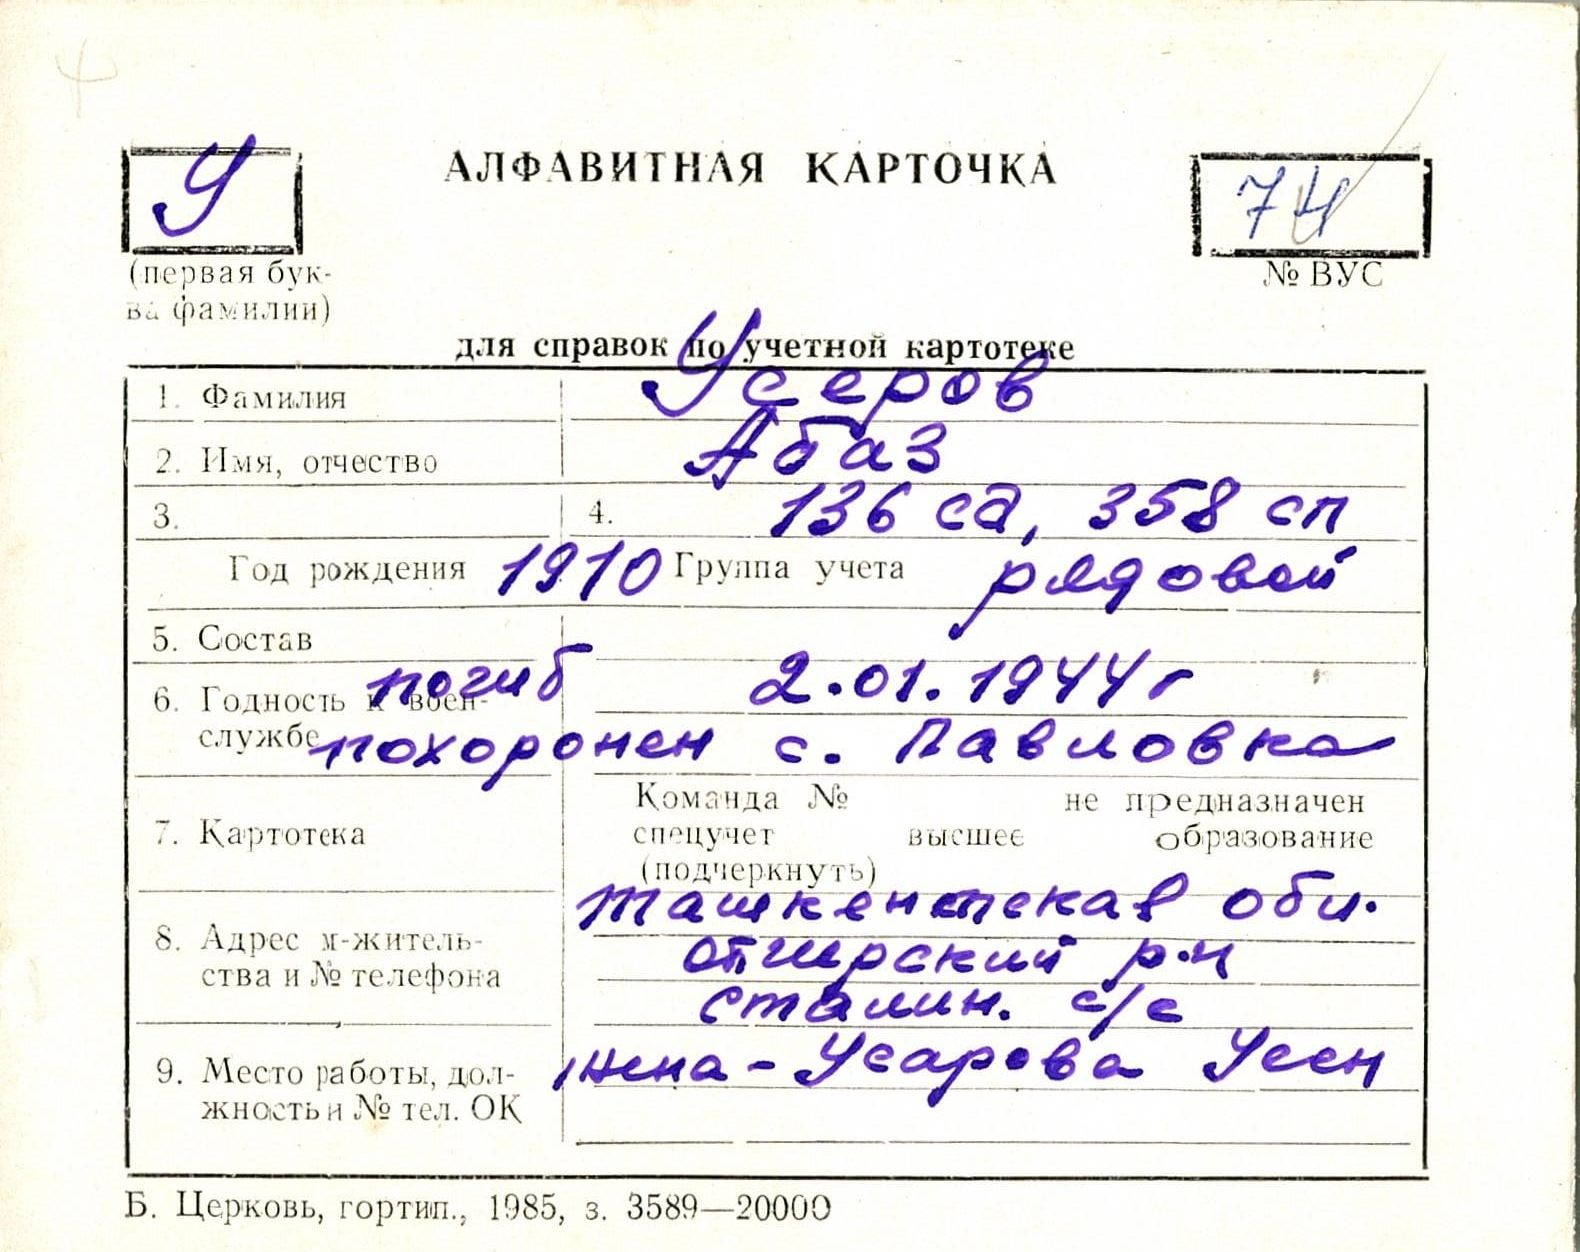 У
АЛФАВИТНАЯ КАРТОЧКА
74
(первая бук-
ва фамилии)
№ ВУС
для справок по учетной картотеке
1. Фамилия Усеров
2. Имя, отчество Абаз
3. 4. 136 сд, 358 сп
Год рождения 1910 Группа учета рядовой
5. Состав
погиб 2.01.1944 г
6. Годность к воен-
службе похоронен с. Павловка
7. Картотека
Команда № не предназначен
спецучет высшее образование
(подчеркнуть)
Ташкентская обл.
8. Адрес м-житель-
ства и № телефона
р-н
сталин. с/с
9. Место работы, дол-
жность и № тел. ОК
жена - Усарова Усен
Б. Церковь, гортип., 1985, з. 3589—20000